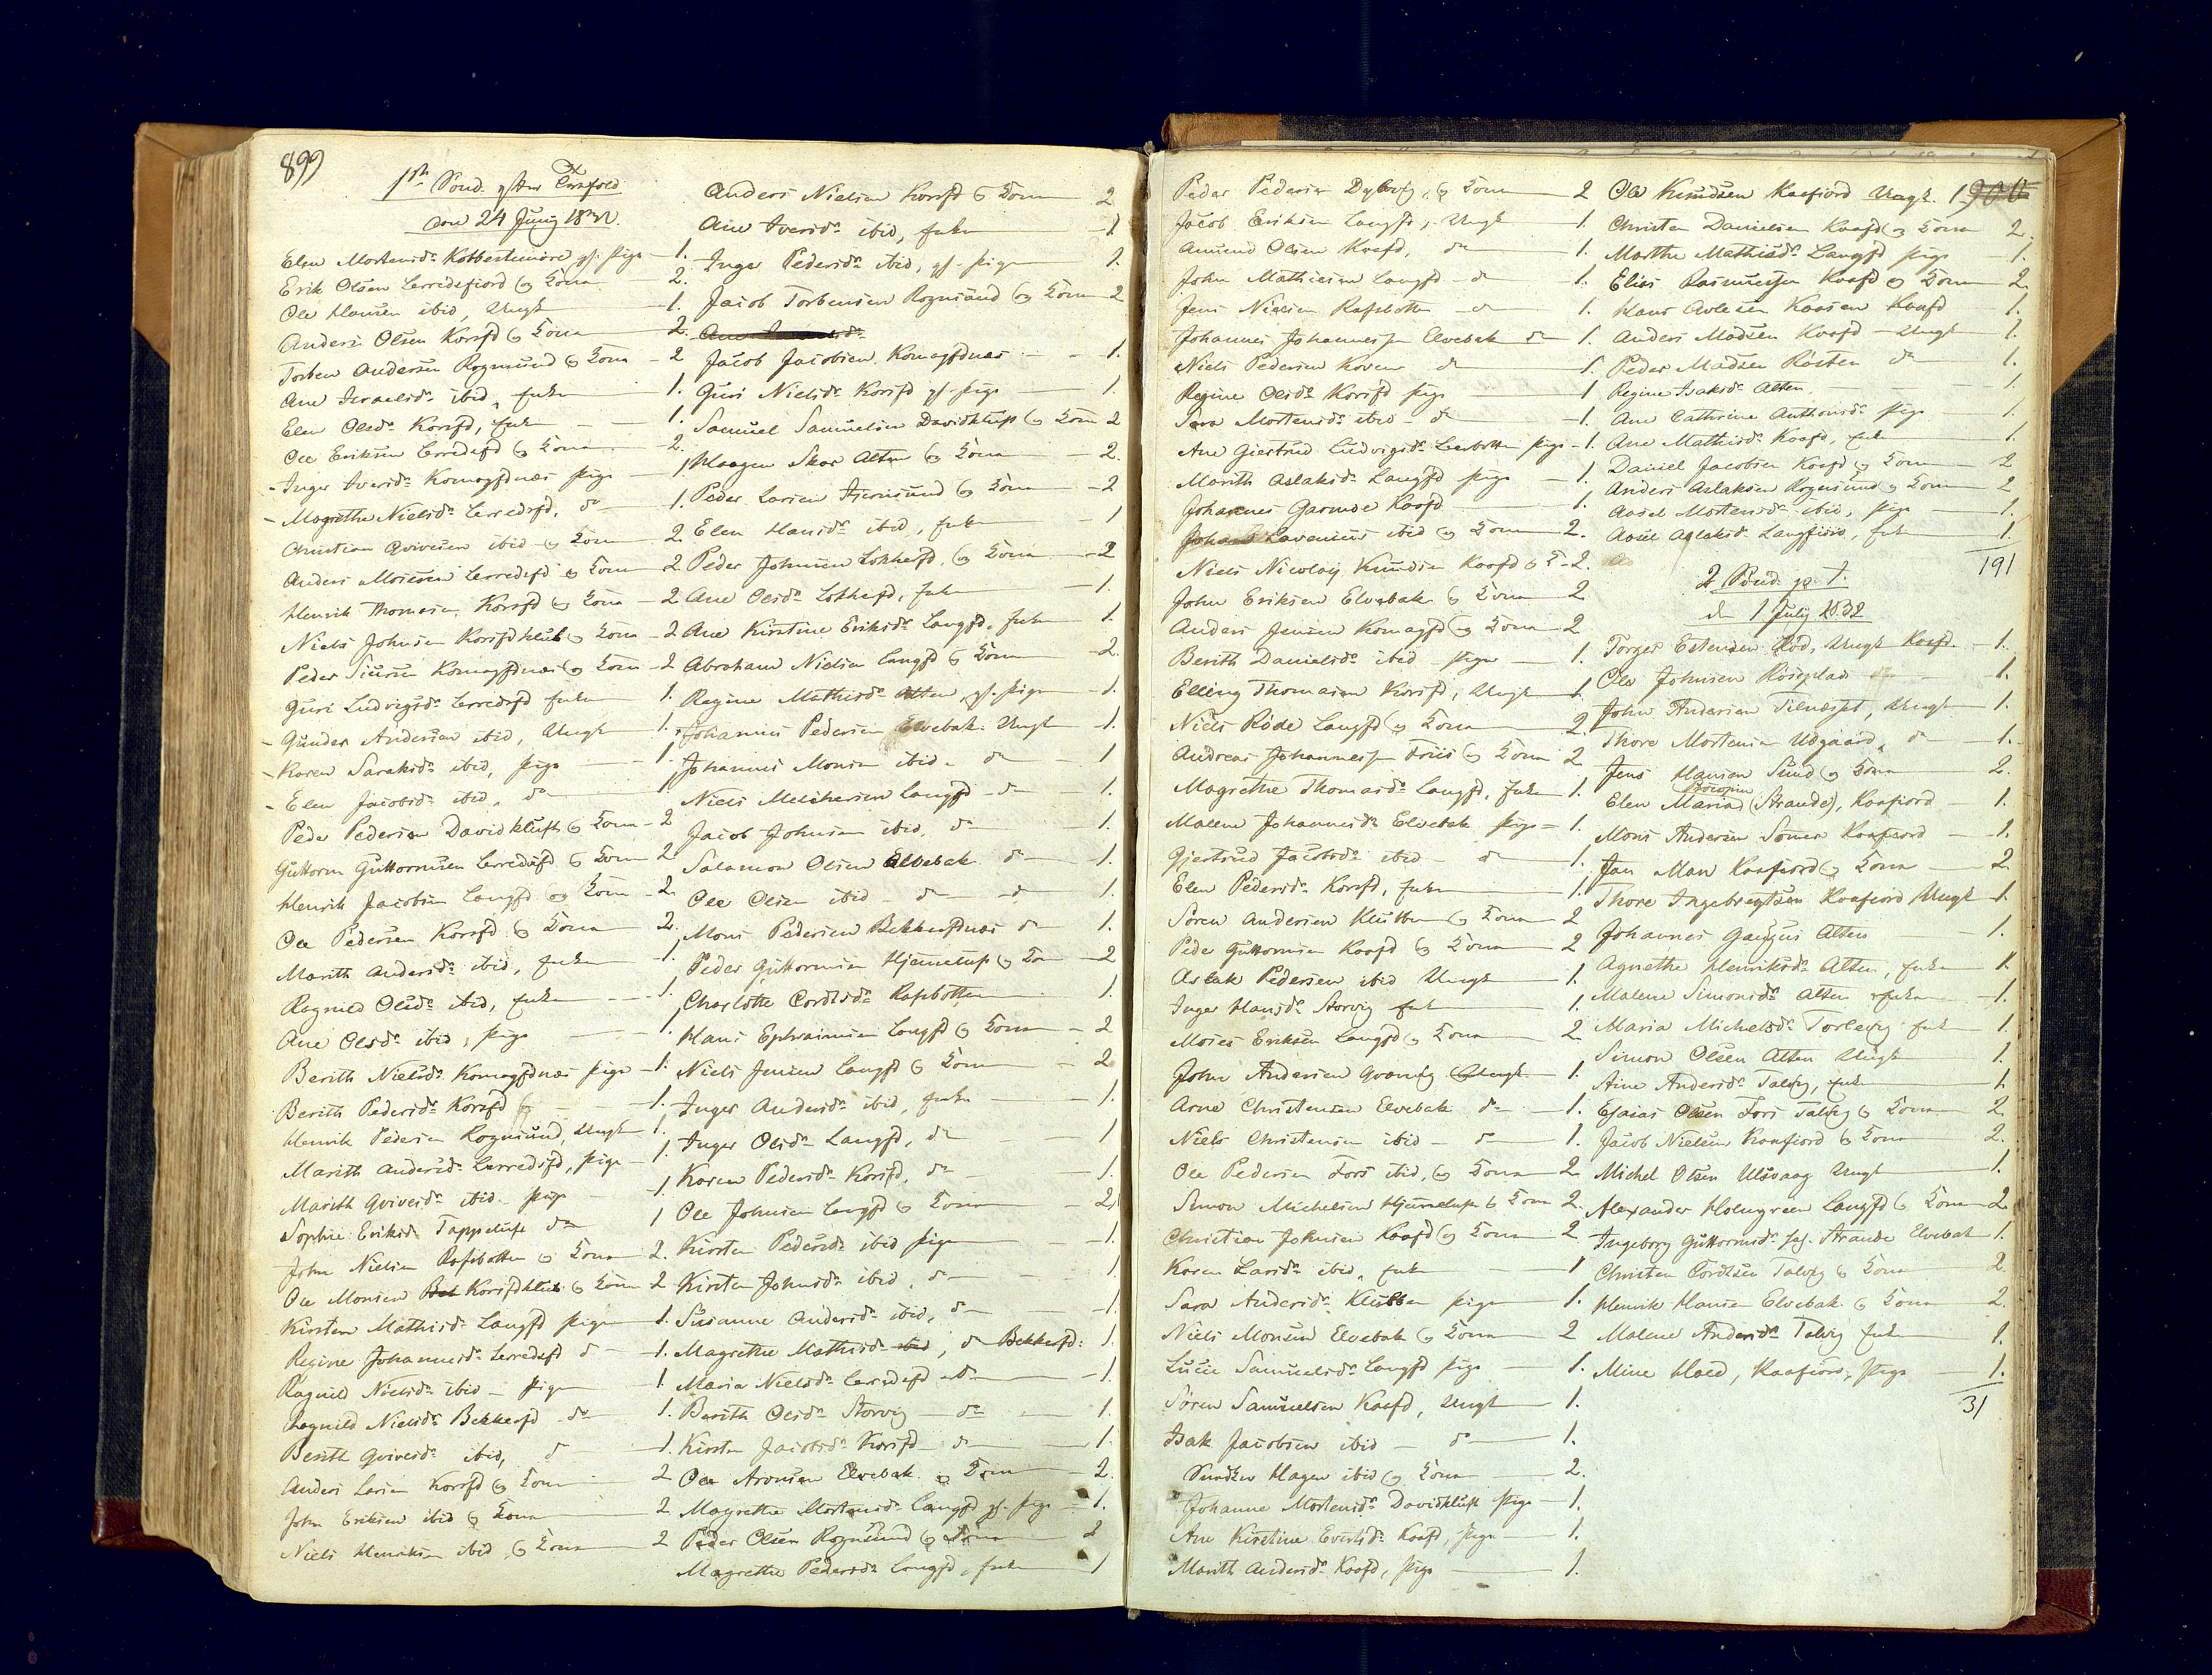 899
1ste Sønd. efter Trinfest
den 24 Juny 1832.
Elen Mortensdr Kobbestuniore gf. pige 1.
Erik Olsen Lerredsfiord og Kona 2.
Ole Hansen ibid, Ungk 1.
Anders Olsen Korsfd og Kona 2.
Torben Andersen Rognsund og Kona 2
Ane Israelsdr ibid, enke 1.
Elen Olsdr Korsfd, enke 1.
Ole Eriksen Lerredsfd og Kona 2.
Inger Iversdr Komagfdnæs pige 1
Magrethe Nielsdr Lerredsfd, do 1.
Christian Qvivesen ibid og Kona 2.
Anders Mosesen Lerredsfd og Kona 2
Henrik Thomasen Korsfd og Kona 2
Niels Johnsen Korsfdklub og Kona 2
Peder Siursen Komagfdnæs og Kona 2
Guri Ludvigsdr Lerredsfd enke 1.
Gunder Andersen ibid, Ungk 1.
Karen Saraksdr ibid, pige 1.
Elen Jacobsdr ibid, do 1
Peder Pedersen Davidkluft og Kona 2
Guttorm Guttormsen Lerredsfd og Kona 2
Henrik Jacobsen Langfd og Kona 2.
Ole Pedersen Korsfd og Kona 2.
Marith Andersdr ibid, enke 1.
Ragnild Olsdr ibid, enke 1.
Ane Olsdr ibid, pige 1.
Berith Nielsdr Komagfdnæs pige 1.
Berith Pedersdr Korsfd 1.
Henrik Pedersen Rognsund, Ungk 1.
Marith Andersdr Lerredsfd, pige 1.
Marith Qvivesdr ibid pige 1
Sophie Eriksdr Tappeluft do 1
John Nielsen Rafsbotten og Kona 2.
Ole Monsen Korsfdklub og Kona 2
Kirsten Mathisdr Langfd pige 1.
Regine Johannesdr Lerredsfd do 1.
Ragnild Nielsdr ibid pige 1
Ragnild Nielsdr Bekkerfd do 1.
Berith Qvivesdr ibid, do 1.
Anders Larsen Korsfd og Kona 2
John Eriksen ibid og Kona 2
Niels Henriksen ibid og Kona 2
Anders Nielsen Korsfd og Kona 2
Ane Iversdr ibid, enke 1
Inger Pedersdr ibid, gf. pige 1.
Jacob Torbensen Rognsund og Kona 2
Jacob Jacobsen Komagfdnæs 1.
Guri Nielsdr Korsfd gf. pige 1.
Samuel Samuelsen Davidkluft og Kona 2
Haagen Skar Alten og Kona 2.
Peder Larsen Stiernsund og Kona 2
Elen Hansdr ibid, enke 1
Peder Johnsen Lokkerfd og Kona 2
Ane Olsdr Lokkerfd, enke 1.
Ane Kirstine Eriksdr Langfd, enke 1.
Abraham Nielsen Langfd og Kona 2.
Regine Mathisdr Alten, gf. pige 1.
Johannes Pedersen Elvebak Ungk 1.
Johannes Monsen ibid do 1
Niels Melchersen Langfd do 1.
Jacob Johnsen ibid, do 1.
Salamon Olsen Elvebak do 1.
Ole Olsen ibid do 1.
Mons Pedersen Bekkerfdnæs do 1.
Peder Guttormsen Hjemeluft og Kona 2
Charlotte Cordtsdr Rafsbotten 1.
Hans Ephraimsen Langfd og Kona 2
Niels Jensen Langfd og Kona 2
Inger Andersdr ibid, enke 1.
Inger Olsdr Langfd, do 1
Karen Pedersdr Korsfd, do 1.
Ole Johnsen Langfd og Kona 2.
Kirsten Pedersdr ibid pige 1.
Kirsten Johnsdr ibid, do 1
Susanne Andersdr ibid, do 1.
Magrethe Mathisdr ibid, do Bekkerfd: 1.
Maria Nielsdr Lerredsfd do 1.
Berith Olsdr Storvig do 1.
Kirsten Jacobsdr Korsfd do 1.
Ole Aronsen Elvebak og Kona 2.
Magrethe Mortensdr Langfd gf. pige 1.
Peder Olsen Rognsund og Kona 2
Magrethe Pedersdr Langfd, enke 1
Peder Pedersen Dybvig, og Kona 2
Jacob Eriksen Langfd, Ungk 1.
Amund Olsen Kaafd, do 1.
John Mathiesen Langfd do 1.
Jens Nielsen Rafsbotten do 1.
Johannes Johannessen Elvebak do 1.
Niels Pedersen Koven do 1.
Regine Olsdr Korsfd pige 1
Sara Mortensdr ibid do 1.
Ane Giertrud Ludvigsdr Leerbotten pige 1.
Marith Aslaksdr Langfd pige 1.
Johannes Gaarnde Kaafd 1.
Lavenius ibid og Kona 2.
Niels Nicolay Knudsen Kaafd og K 2.
John Eriksen Elvebak og Kona 2
Anders Jensen Komagfd og Kona 2
Berith Danielsdr ibid pige 1.
Elling Thomasen Korsfd, Ungk 1.
Niels Røde Langfd og Kona 2.
Andreas Johannessen Friis og Kona 2
Magrethe Thomasdr Langfd, Enke 1.
Malene Johannesdr Elvebak pige 1.
Gjertrud Jacobsdr ibid do 1.
Elen Pedersdr Korsfd, enke 1.
Søren Andersen Klubben og Kona 2
Peder Guttormsen Kaafd og Kona 2
Aslak Pedersen ibid Ungk 1.
Inger Hansdr Storvig enke 1.
Moses Eriksen Langfd og Kona 2
John Andersen Qvænvig Ungk 1.
Arne Christensen Elvebak do 1.
Niels Christensen ibid do 1.
Ole Pedersen Fors ibid, og Kona 2
Simon Michelsen Hjemeluft og Kona 2.
Christian Johnsen Kaafd og Kona 2
Karen Larsdr ibid, enke 1
Sara Andersdr Klubben pige 1.
Niels Monsen Elvebak og Kona 2
Lucie Samuelsdr Langfd pige 1.
Søren Samuelsen Kaafd, Ungk 1.
Isak Jacobsen ibid do 1.
Hagen ibid og Kona 2.
Johanne Mortensdr Davidkluft pige 1.
Ane Kirstine Evertsdr Kaafd, pige 1.
Marith Andersdr Kaafd, pige 1.
Ole Knudsen Kaafiord Ungk. 1 900
Christen Danielsen Kaafd og Kona 2.
Marthe Mathisdr Langfd pige 1.
Elias Rasmussen Kaafd og Kona 2.
Hans Avlesen Kaasen Kaafd 1.
Anders Madsen Kaafd Ungk 1.
Peder Madsen Røsten do 1.
Regine Isaksdr Alten 1.
Ane Cathrine Anthonsdr pige 1.
Ane Mathisdr Kaafd, enke 1.
Daniel Jacobsen Kaafd og Kona 2
Anders Aslaksen Rognsund og Kona 2
Aasel Mortensdr ibid, pige 1.
Asiil Aslaksdr Langfiord, enke 1.
191
2 Sønd. p. T.
d 1 July 1832
Torger Estensen Rød, Ungk Kaafd. 1.
Ole Johnsen Røseplad 1.
John Andersen Tilnesset, Ungk 1.
Thore Mortensen Udgaard, do 1.
Jens Hansen Sund og Kona 2.
Elen Maria (Strande), Kaafiord 1.
Mons Andersen Somen Kaafiord 1.
Jan Man Kaafiord og Kona 2.
Thore Ingebregtsen Kaafiord Ungk 1.
Johannes Gangus Alten 1.
Agnethe Henriksdr Alten, enke 1.
Malene Simonsdr Alten enke 1.
Maria Michelsdr Torlevig enke 1.
Simon Olsen Alten Ungk 1.
Aine Andersdr Talvig, enke 1
Esaias Olsen Fors Talvig og Kona 2
Jacob Nielsen Kaafiord og Kona 2.
Michel Olsen Ulsvaag Ungk 1.
Alexander Holmgreen Langfd og Kona 2
Ingeborg Guttormsdr Strande Elvebak 1.
Christen Cordtsen Talvig og Kona 2.
Henrik Hansen Elvebak og Kona 2.
Malene Andersdr Talvig enke 1.
Mine Hald, Kaafiord, pige 1.
31